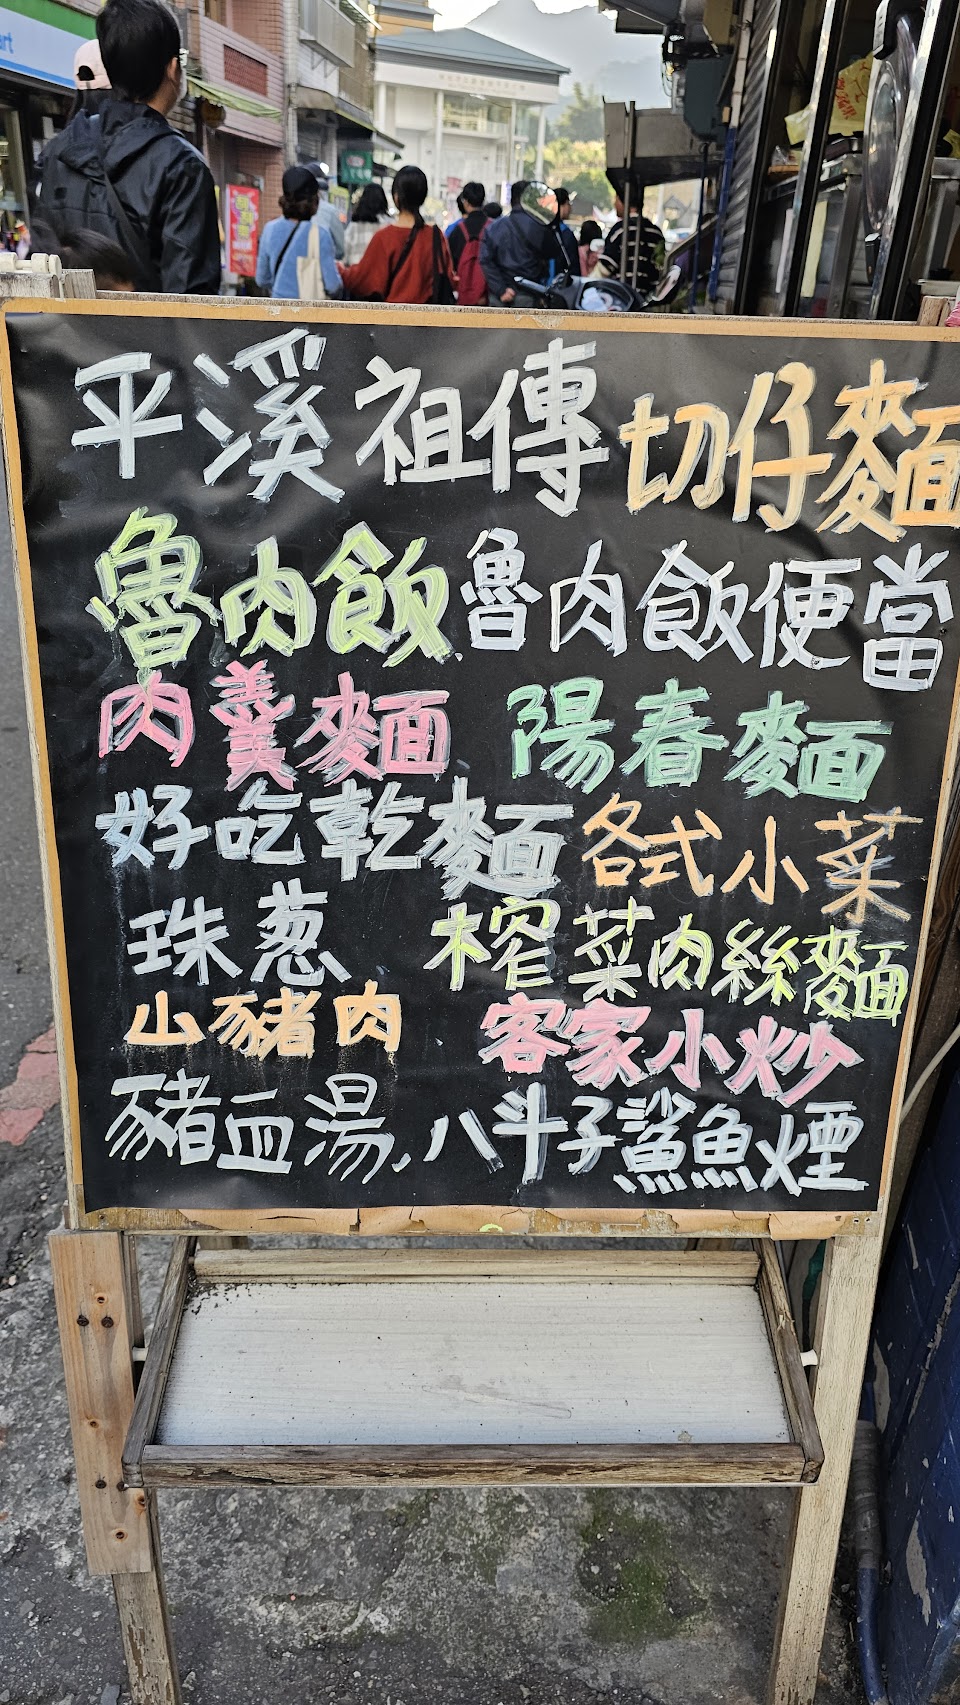 平溪祖傳切仔麵
魯肉飯 魯肉飯便當
肉羹麵 陽春麵
好吃乾麵 各式小菜
珠葱 榨菜肉絲麵
山豬肉 客家小炒
豬血湯. 八斗子鯊魚煙